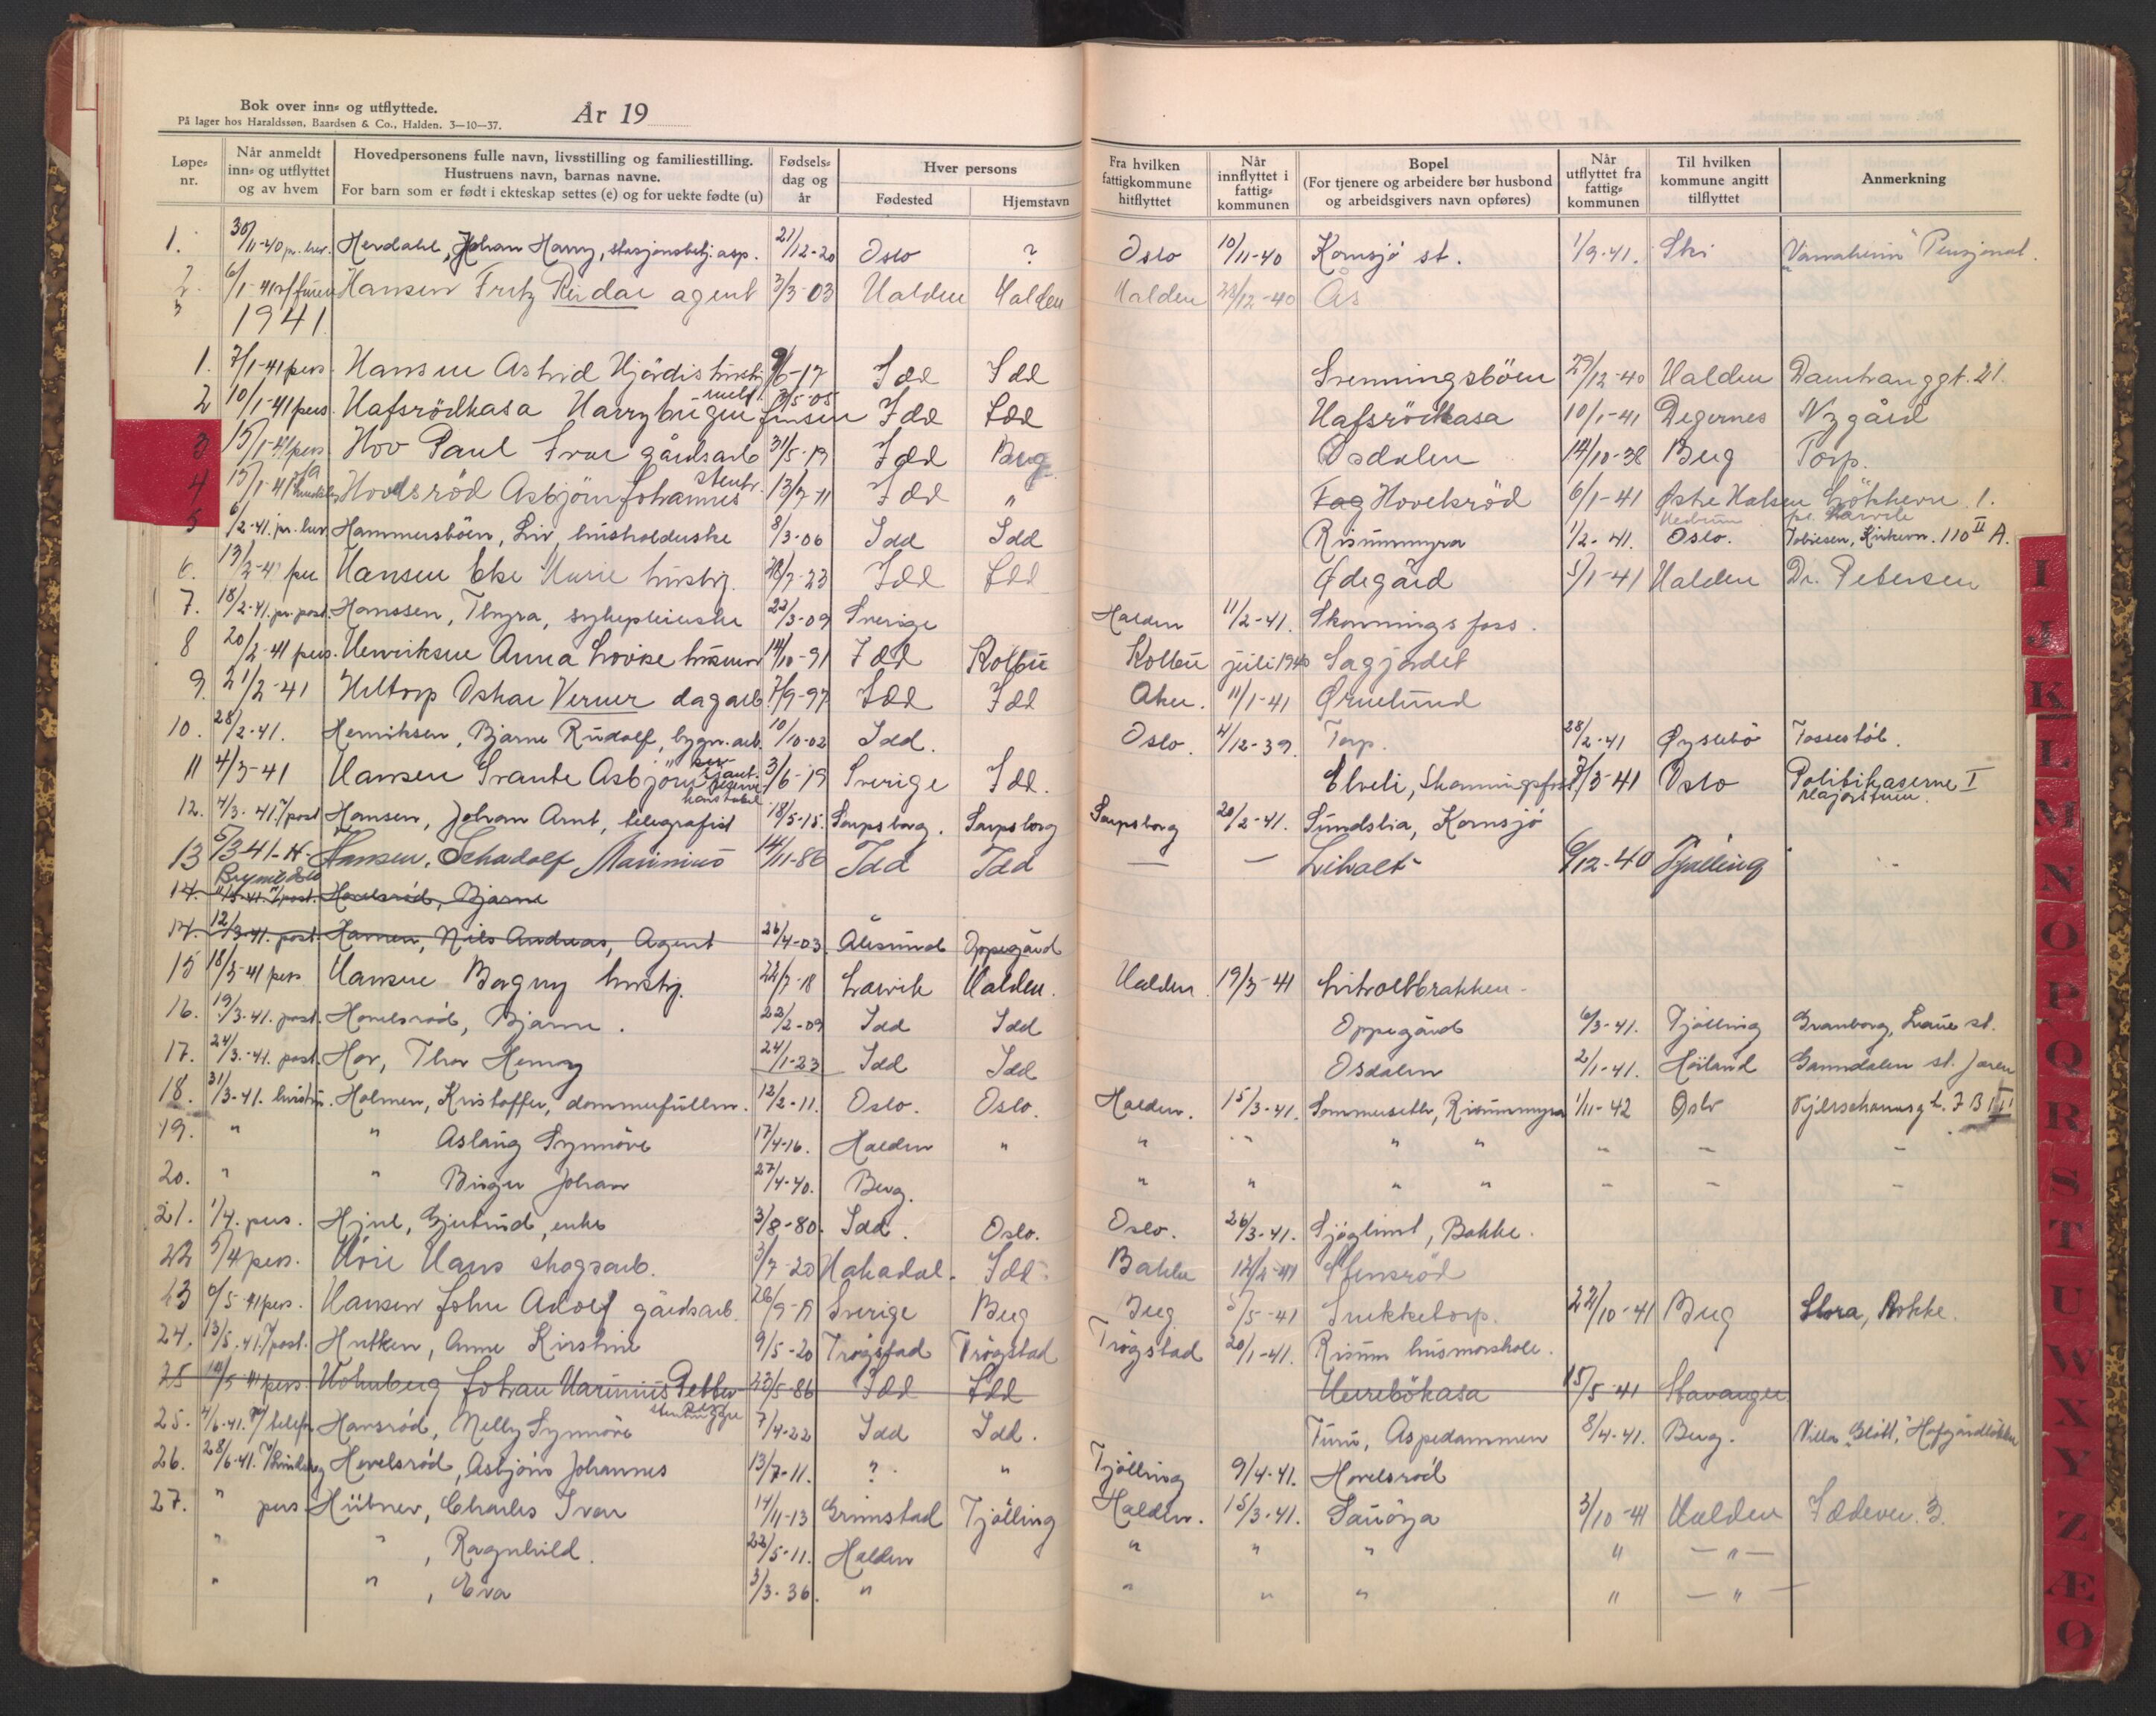 Bok over inn- og utflyttede.
På lager hos Haraldssøn, Baardsen & Co., Halden. 3—10—37.
År 19
Løpe- nr. | Når anmeldt inn- og utflyttet og av hvem | Hovedpersonens fulle navn, livsstilling og familiestilling. Hustruens navn, barnas navne. For barn som er født i ekteskap settes (e) og for uekte fødte (u) | Fødsels- dag og år | Hver persons Fødested | Hjemstavn | Fra hvilken fattigkommune hitflyttet | Når innflyttet i fattig- kommunen | Bopel (For tjenere og arbeidere bør husbond og arbeidsgivers navn opføres) | Når utflyttet fra fattig- kommunen | Til hvilken kommune angitt tilflyttet | Anmerkning
1. 30/11-40 pr. brev. Herdahl, Johan Harry, stasjonsbetj. asp. 21/12-20 Oslo ? Oslo 10/11-40 Kornsjø st. 1/9-41. Ski "Vamaheim" Pensjonat.
2. 6/1-41 Hansen Fritz Reidar agent 3/3-03 Halden Halden Halden 28/12-40 Ås
3 1941.
1. 7/1-41 pers. Hansen Astrid Hjørdis hushj 9/6-17 Idd Idd Svenningsbøen 27/12-40 Halden Damhauggt. 21.
2 10/1-41 pers. Hafsrødkasa Harry Eugen Jensen 3/5-05 Idd Idd Hafsrødkasa 10/1-41 Degernes Nygård
3 15/1-41 pers Hov Paul Ivar gårdsarb 31/5-19 Idd Berg Osdalen 14/10-38 Berg Torp.
4 15/1-41 Hovelsrød Asbjørn Johannes stenh. 13/7-11 Idd " Hovelsrød 6/1-41 Østre Halsen Løkkevn 1. pr. Larvik
5 6/2-41. pr. brev Hammersbøen, Liv, husholderske 8/3-06 Idd Idd Risummyra 1/2-41. Oslo. Tobiesen, Kirkevn. 110 II A.
6. 13/2-41 per Hansen Else Marie hushj. 28/7-23 Idd Idd Ødegård 5/1-41 Halden Dr. Petersen
7. 18/2-41. pr. post. Hanssen, Thyra, sykepleierske 22/3-09 Sverige Halden 11/2-41. Skonningsfoss.
8 20/2-41 pers. Henriksen Anna Lovise husmor 14/10-91 Idd Kolbu Kolbu juli 1940 Sagjordet
9. 21/2-41 Heltorp Oskar Verner dagarb. 7/9-97 Idd Idd Aker. 11/1-41 Ørnelund
10. 28/2-41. Henriksen, Bjarne Rudolf, bygn.arb. 10/10-02 Idd. Oslo. 4/12-39 Torp. 28/2-41 Øyslebø Fossestøl.
11 4/3-41 Hansen Svante Asbjørn reserve konstabel 3/6-19 Sverige Idd. Elveli, Skonningsfoss 3/3-41 Oslo Politikaserne I Majorstuen.
12. 4/3-41. post Hansen, Johan Arnt, telegrafist 18/5-15. Sarpsborg. Sarpsborg Sarpsborg 20/2-41. Sundslia, Kornsjø
13 5/3 41 Hansen, Schadolf Marinius 14/11-86 Idd Idd — — Livholt 6/12-40 Tjølling
14. 11/3-41. post. Hovelsrød, Bjarne
14. 12/3-41. post. Hansen, Nils Andreas, Agent 26/4-03. Ålesund Oppegård
15 18/3-41 pers Hansen Bagny hushj. 22/7-18 Larvik Halden. Halden 19/3-41 Livholtbrakken
16. 19/3-41. post. Hovelsrød, Bjarne. 22/2-09 Idd Idd Oppegård 6/3-41. Tjølling Granborg, Lauve st.
17. 24/3.-41. post. Hov, Thor Henry 24/1-23 Idd Idd Osdalen 2/1-41. Høiland Ganndalen st. Jæren
18. 31/3-41. Holmen, Kristoffer, dommerfullm. 12/2-11. Oslo. Oslo. Halden. 15/3-41. Sommersetr, Risummyra 1/11-42 Oslo Kjelschowsgt. 7 B III
19. " " Aslaug Synnøve 17/4-16. Halden " " " " " — — —
20. " " Birger Johan 27/4-40. Berg. " " " " — — —
21. 1/4. pers. Hjul, Gjertrud, enke 3/8-80. Idd. Oslo. Oslo. 26/3-41. Sjøglimt, Bakke.
22 5/4 pers. Høie Hans skogsarb. 3/7-20 Hakadal. Idd Bakke 12/2-41 Stensrød
23 6/5-41 pers. Hansen John Adolf gårdsarb. 26/9-19 Sverige Berg Berg 5/5-41 Snekketorp. 22/10-41 Berg Stora, Rokke.
24. 13/5.41. post. Hutken, Anne Kirstine 9/5-20 Trøgstad Trøgstad Trøgstad 20/1-41. Risum husmorskole.
25 14/5-41 pers. Holmberg Johan Marinius Petter 23/5-86 Idd Idd Herrebøkasa 15/5-41 Stavanger
25. 4/6-41. telef. Hansrød, Nelly Synnøve 7/4-22 Idd Idd. Furu, Aspedammen 8/4-41. Berg. Villa "Gløtt", Hafgårdløkken
26. 28/6-41. Hovelsrød, Asbjørn Johannes 13/7-11. ? " Tjølling 9/4-41. Hovelsrød
27. " pers Hübner, Charles Ivar 14/11-13 Grimstad Tjølling Halden. 15/3-41. Sauøya 3/10-41 Halden Iddevn. 3.
" " , Ragnhild. 22/5-11. Halden " " " " — " —
" " , Eva 3/3-36. " " " " " — " —
I
J
K
L
M
N
O
P
Q
R
S
T
U
W
X
Y
Z
Æ
Ø